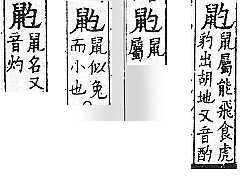 鼠屬能飛食虎
豹出胡地又音酌
鼠
屬
鼠似兔
而小也
鼠名又
音灼